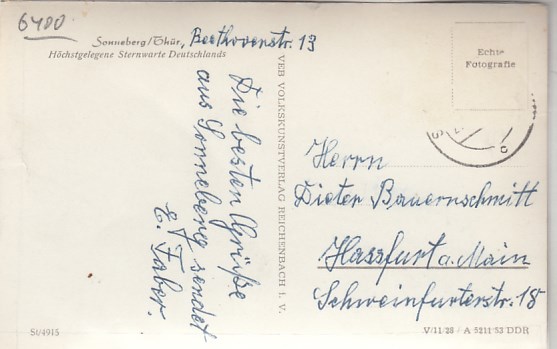 6400
Sonneberg/Thür., Beethovenstr. 13
Höchstgelegene Sternwarte Deutschlands
Die besten Grüße
aus Sonneberg sendet
E. Faber.
VEB VOLKSKUNSTVERLAG REICHENBACH i. V.
Echte
Fotografie
Herrn
Dieter Bauernschmitt
Hassfurt a. Main
Schweinfurterstr. 18
St/4915
V/11/28 · A 5211/53/DDR